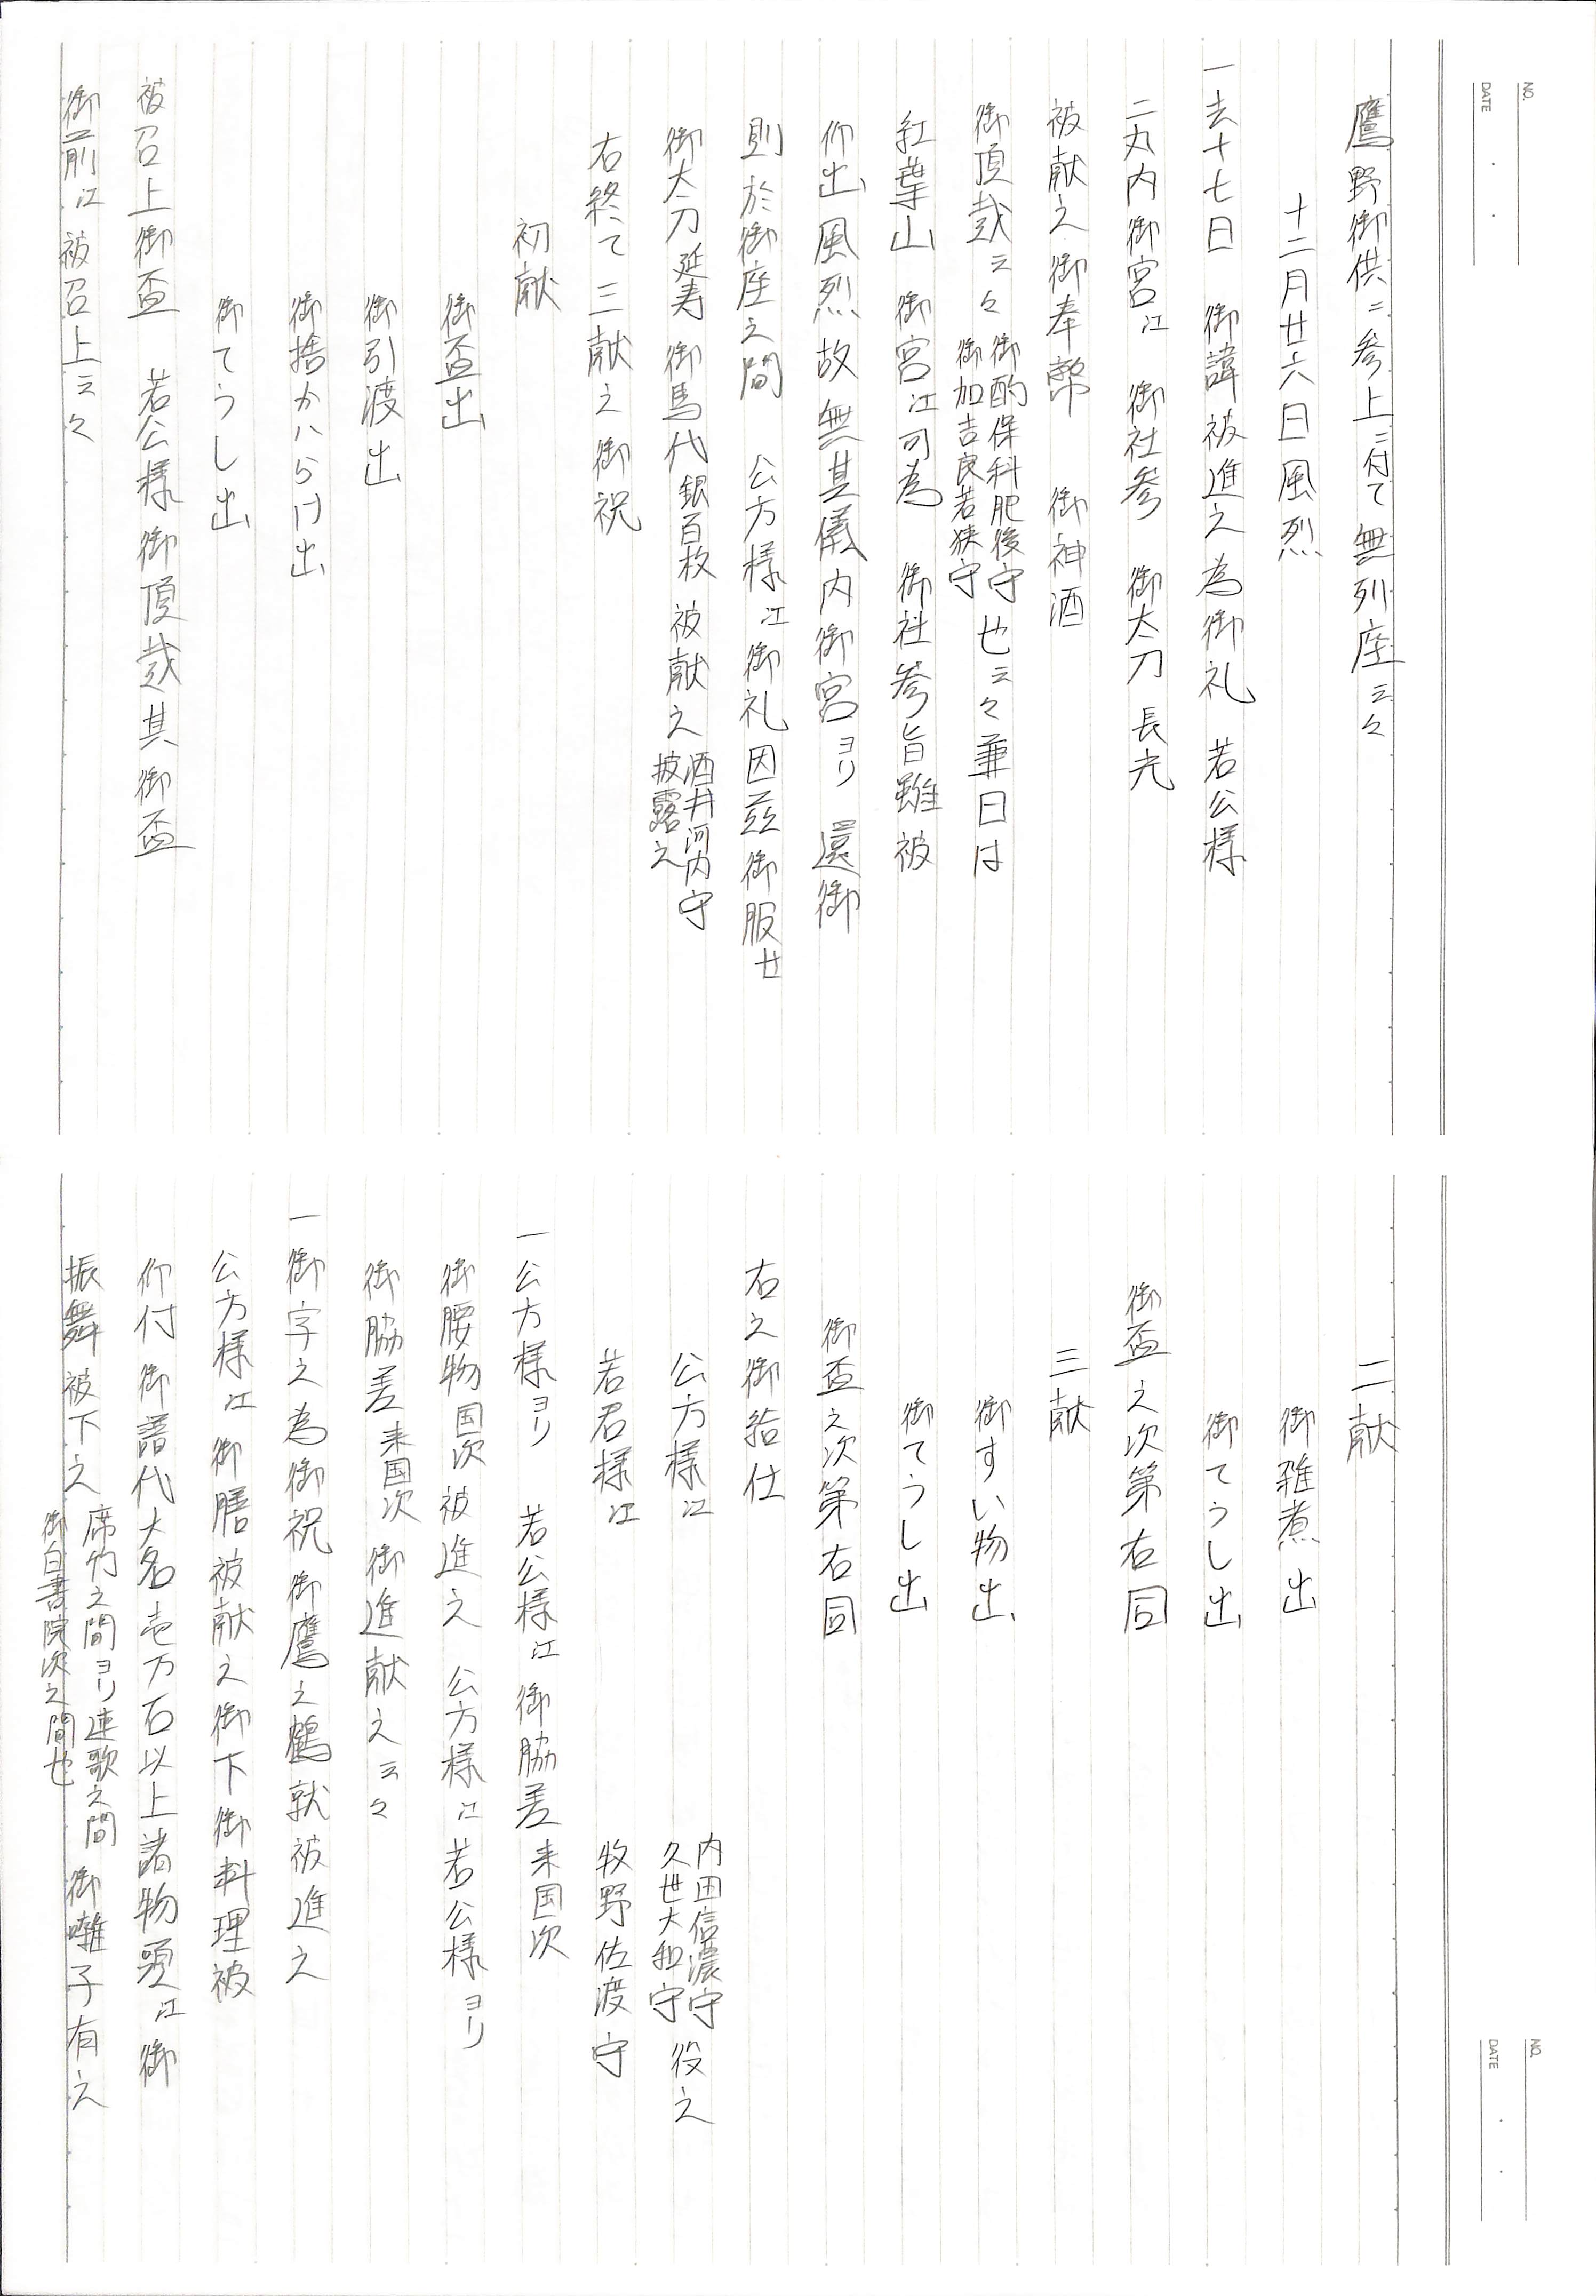 NO.
DATE
鷹野御供ニ参上ニ付て無列座云々
十二月廿六日風烈
一去十七日　御諱被進之為御礼　若公様
二丸内御宮江　御社参　御太刀 長光
被献之御奉幣　御神酒
御頂戴云々 御酌保科肥後守 御加吉良若狭守 也云々兼日は
紅葉山　御宮江可為　御社参旨雖被
仰出風烈故無其儀内御宮ヨリ　還御
則於御座之間　公方様江御礼因茲御服廿
御太刀 延寿 御馬代 銀百枚 被献之 酒井河内守 披露之
右終て三献之御祝
初献
御盃出
御引渡出
御捨かハらけ出
御てうし出
被召上御盃　若公様御頂戴其御盃
御前江被召上云々
二献
御雑煮出
御てうし出
御盃之次第右同
三献
御すい物出
御てうし出
御盃之次第右同
右之御給仕
公方様江　内田信濃守 久世大和守 役之
若君様江　牧野佐渡守
一公方様ヨリ　若公様江御脇差 来国次
御腰物 国次 被進之　公方様江若公様ヨリ
御脇差 来国次 御進献之云々
一御字之為御祝御鷹之鶴就被進之
公方様江御膳被献之御下御料理被
仰付　御譜代大名壱万石以上諸物頭江御
振舞被下之 席竹之間ヨリ連歌之間 御白書院次之間也 御囃子有之
NO.
DATE